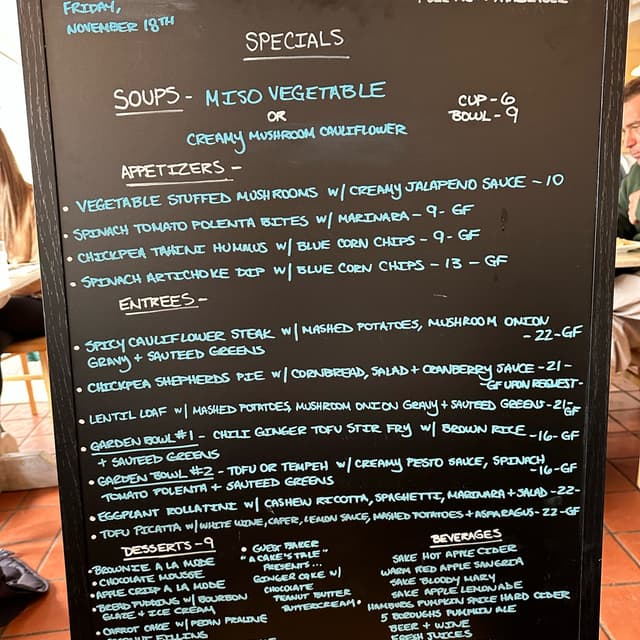 FRIDAY,
NOVEMBER 18TH
SPECIALS
SOUPS - MISO VEGETABLE
OR
CREAMY MUSHROOM CAULIFLOWER
CUP - 6
BOWL - 9
APPETIZERS -
• VEGETABLE STUFFED MUSHROOMS W/ CREAMY JALAPENO SAUCE - 10
• SPINACH TOMATO POLENTA BITES W/ MARINARA - 9 - GF
• CHICKPEA TAHINI HUMMUS W/ BLUE CORN CHIPS - 9 - GF
• SPINACH ARTICHOKE DIP W/ BLUE CORN CHIPS - 13 - GF
ENTREES -
• SPICY CAULIFLOWER STEAK W/ MASHED POTATOES, MUSHROOM ONION
GRAVY + SAUTEED GREENS - 22 - GF
• CHICKPEA SHEPHERDS PIE W/ CORNBREAD, SALAD + CRANBERRY SAUCE - 21 -
GF UPON REQUEST -
• LENTIL LOAF W/ MASHED POTATOES, MUSHROOM ONION GRAVY + SAUTEED GREENS - 21 - GF
• GARDEN BOWL #1 - CHILI GINGER TOFU STIR FRY W/ BROWN RICE
+ SAUTEED GREENS - 16 - GF
• GARDEN BOWL #2 - TOFU OR TEMPEH W/ CREAMY PESTO SAUCE, SPINACH
TOMATO POLENTA + SAUTEED GREENS - 16 - GF
• EGGPLANT ROLLATINI W/ CASHEW RICOTTA, SPAGHETTI, MARINARA + SALAD - 22 -
• TOFU PICATTA W/ WHITE WINE, CAPER, LEMON SAUCE, MASHED POTATOES + ASPARAGUS - 22 - GF
DESSERTS - 9
• BROWNIE A LA MODE
• CHOCOLATE MOUSSE
• APPLE CRISP A LA MODE
• BREAD PUDDING W/ BOURBON
GLAZE + ICE CREAM
• CARROT CAKE W/ PECAN PRALINE
FILLING
• GUEST BAKER
"A CAKE'S TALE"
PRESENTS...
GINGER CAKE W/
CHOCOLATE
PEANUT BUTTER
BUTTERCREAM.
BEVERAGES
SAKE HOT APPLE CIDER
WARM RED APPLE SANGRIA
SAKE BLOODY MARY
SAKE APPLE LEMONADE
HAMBURG PUMPKIN SPICE HARD CIDER
5 BOROUGHS PUMPKIN ALE
BEER + WINE
FRESH JUICES